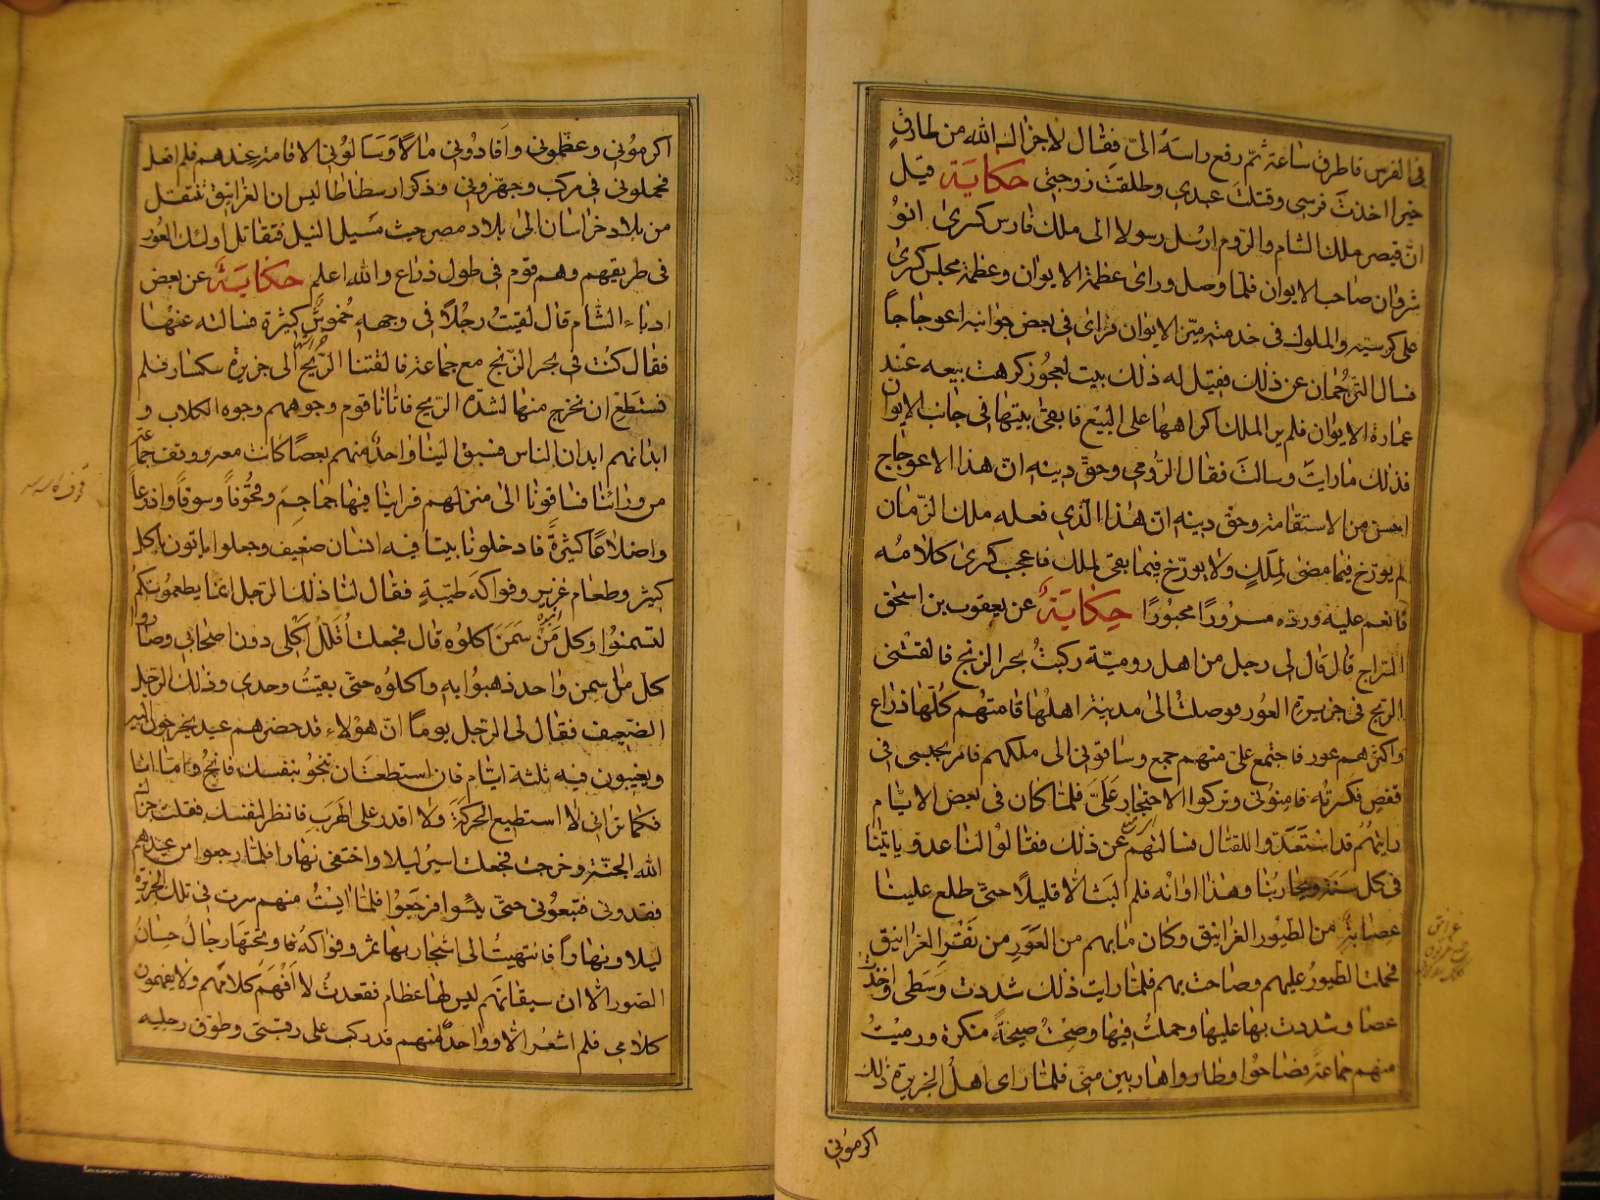 فى الفرس فاطرف ساعة ثم رفع راسه الىّ فقال لا جزاك الله من طارق
خيرا اخذت فرسى وقتلت عبدى وطلقت زوجتى حكاية قيل
انّ قيصر ملك الشام والروم ارسل رسولا الى ملك فارس كسرى انو
شروان صاحب الايوان فلما وصل وراى عظمة الايوان وعظمة مجلس كسرى
على كرسيه والملوك فى خدمته ميّز الايوان فراى فى بعض جوانبه اعوجاجاً
فسال الترجمان عن ذلك فقيل له ذلك بيت لعجوز كرهت بيعه عند
عمارة الايوان فلم ير الملك اكراهها على البيع فابقى بيتها فى جانب الايوان
فذلك ما رايت وسالت فقال الرومى وحق دينه انّ هذا الاعوجاج
احسن من الاستقامة وحق دينه انّ هذا الّذى فعله ملك الزمان
لم يورّخ فيما مضى لملك ولا يورّخ فيما بقى لملك فاعجب كسرى كلامه
فانعم عليه وردّه مسرورًا محبورًا حكاية عن يعقوب بن اسحق
السراج قال قال لى رجل من اهل رومية ركبت بحر الزنج فالقتنى
الريح فى جزيرة العور فوصلت الى مدينة اهلها قامتهم كلها ذراع
واكثرهم عور فاجتمع علىّ منهم جمع وساقونى الى ملكهم فامر بحبسى فى
قفص فكسرته فامنونى وتركوا الاحتجار علىّ فلما كان فى بعض الايام
رايتهم قد استعدّوا للقتال فسالتهم عن ذلك فقالوا لنا عدوّ ياتينا
فى كل سنة ويحاربنا وهذا اوانه فلم البث الّا قليلًا حتى طلع علينا
عصابة من الطيور الغرانيق وكان ما بهم من العَوَر من نَقْر الغرانيق
فحملت الطيور عليهم وصاحت بهم فلما رايت ذلك شددت وسطى واخذت
عصا وشددت بها عليها وحملت فيها وصحت صيحةً منكرة ورميت
منهم جماعة فصاحوا وطاروا هاربين منى فلما راى اهل الجزيرة ذلك
اكرمونى
اكرمونى وعظمونى وافادونى مالًا وسالونى الاقامة عندهم فلم افعل
فحملونى فى مركب وجهزونى وذكر ارسطاطاليس ان الغرانيق تنتقل
من بلاد خراسان الى بلاد مصر حيث مسيل النيل فتقاتل اولئك العور
فى طريقهم وهم قوم فى طول ذراع والله اعلم حكاية عن بعض
ادباء الشام قال لقيت رجلًا فى وجهه خموش كثيرة فسالته عنها
فقال كنت فى بحر الزنج مع جماعة فالقتنا الريح الى جزيرة سكسار فلم
نستطع ان نخرج منها لشدة الريح فاتانا قوم وجوههم وجوه الكلاب و
ابدانهم ابدان الناس فسبق الينا واحد منهم بعصًا كانت معه ووقف جماعة
من ورائنا فساقونا الى منزلهم فراينا فيها جماجم وقحوفاً وسوقاً واذرعاً
واضلاعًا كثيرةً فادخلونا بيتا فيه انسان ضعيف وجعلوا ياتون باكل
كثير وطعام غزير وفواكه طيبةٍ فقال لنا ذلك الرجل انما يطعمونكم
لتسمنوا وكل من سمن اكلوه قال فجعلت اقلل اكلى دون اصحابى وصاروا
كل ما سمن واحد ذهبوا به واكلوه حتى بقيت وحدى وذلك الرجل
الضعيف فقال لى الرجل يوماً انّ هؤلاء قد حضرهم عيد يخرجون اليه
ويغيبون فيه ثلثة ايام فان استطعت ان تنجو بنفسك فانج واما انا
فكما ترانى لا استطيع الحركة ولا اقدر على الهرب فانظر لنفسك فقلت جزاك
الله الجنة وخرجت فجعلت اسير ليلا واختفى نهارا فلما رجعوا من عيدهم
فقدونى فتبعونى حتى يئسوا فرجعوا فلما ايست منهم سرت فى تلك الجزيرة
ليلا ونهاراً فانتهيت الى اشجار بها ثمر وفواكه وتحتها رجال حسان
الصور الّا ان سيقانهم ليس لها عظام فقعدت لا افهم كلامهم ولا يفهمون
كلامى فلم اشعر الّا وواحد منهم قد ركب على رقبتى وطوق رجليه